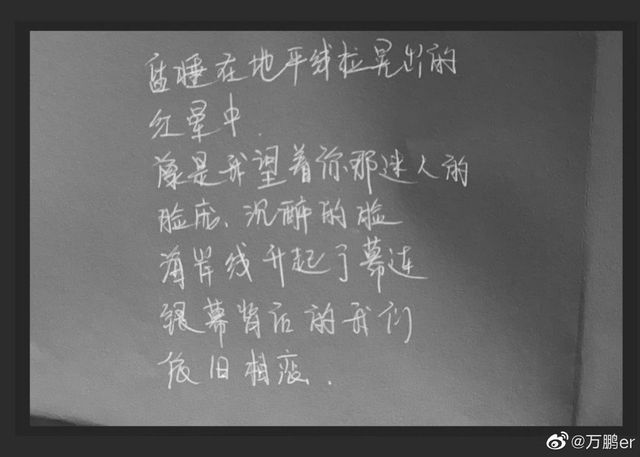 酣睡在地平线拉晃出的
红晕中.
像是我望着你那迷人的
脸庞、沉醉的脸
海岸线升起了幕连
银幕背后的我们
依旧相恋.
@万鹏er